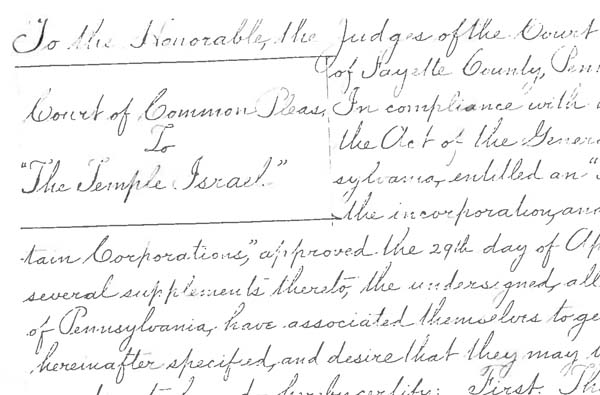 To the Honorable, the Judges of the Court
of Fayette County, Penn
Court of Common Pleas,
To
"The Temple Israel."
In compliance with
the Act of the Gener
sylvania, entitled an "
the incorporation, and
tain Corporations," approved the 29th day of Ap
several supplements thereto, the undersigned, all
of Pennsylvania, have associated themselves toge
hereinafter specified, and desire that they may
certify: First. Th